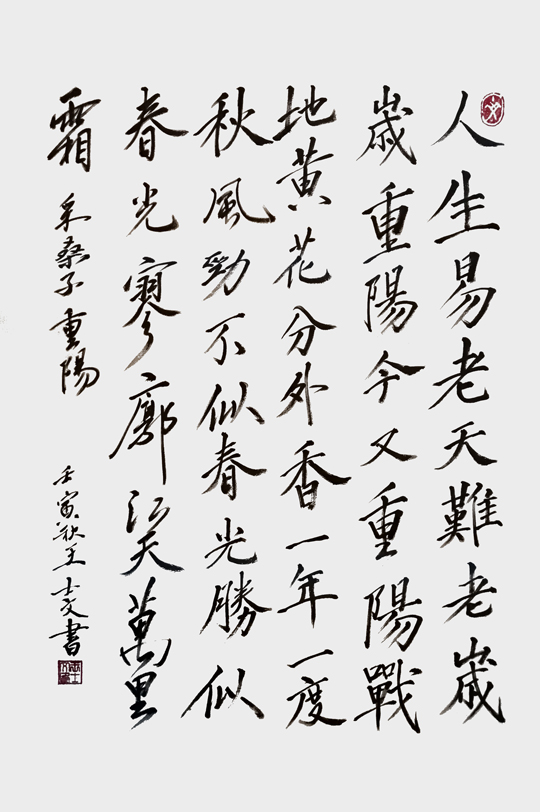 人生易老天難老歲
歲重陽今又重陽戰
地黄花分外香一年一度
秋風勁不似春光勝似
春光寥廓江天萬里
霜 采桑子 重陽 壬寅秋王士文書